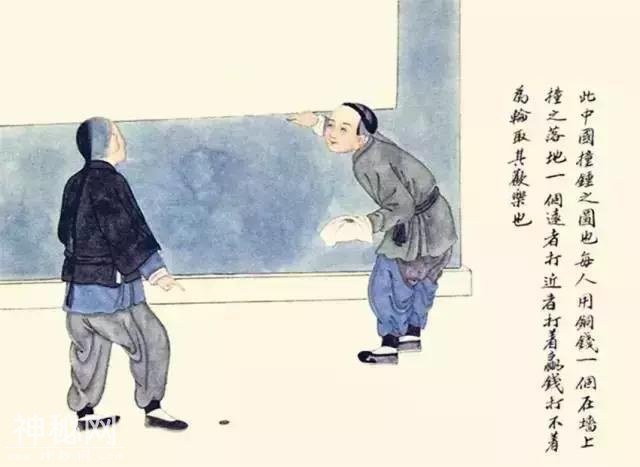 此中國撞鍾之圖也每人用銅錢一個在墻上
撞之落地一個遠者打近者打着贏錢打不着
為輸取其歡樂也
神秘网